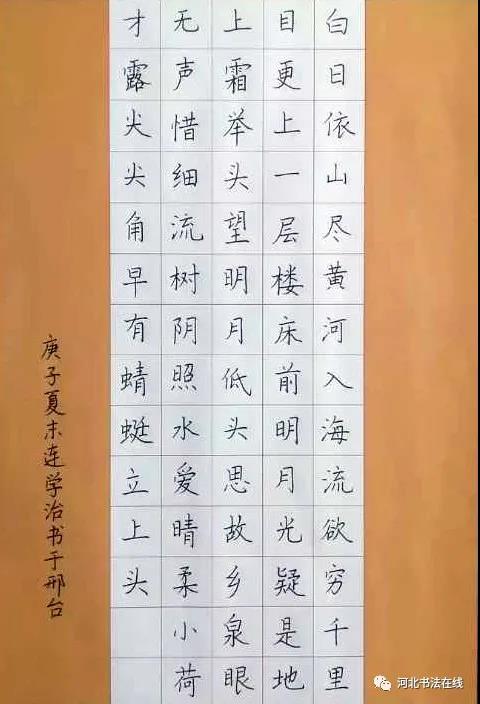 白日依山尽黄河入海流欲穷千里
目更上一层楼床前明月光疑是地
上霜举头望明月低头思故乡泉眼
无声惜细流树阴照水爱晴柔小荷
才露尖尖角早有蜻蜓立上头
庚子夏末连学治书于邢台
河北书法在线